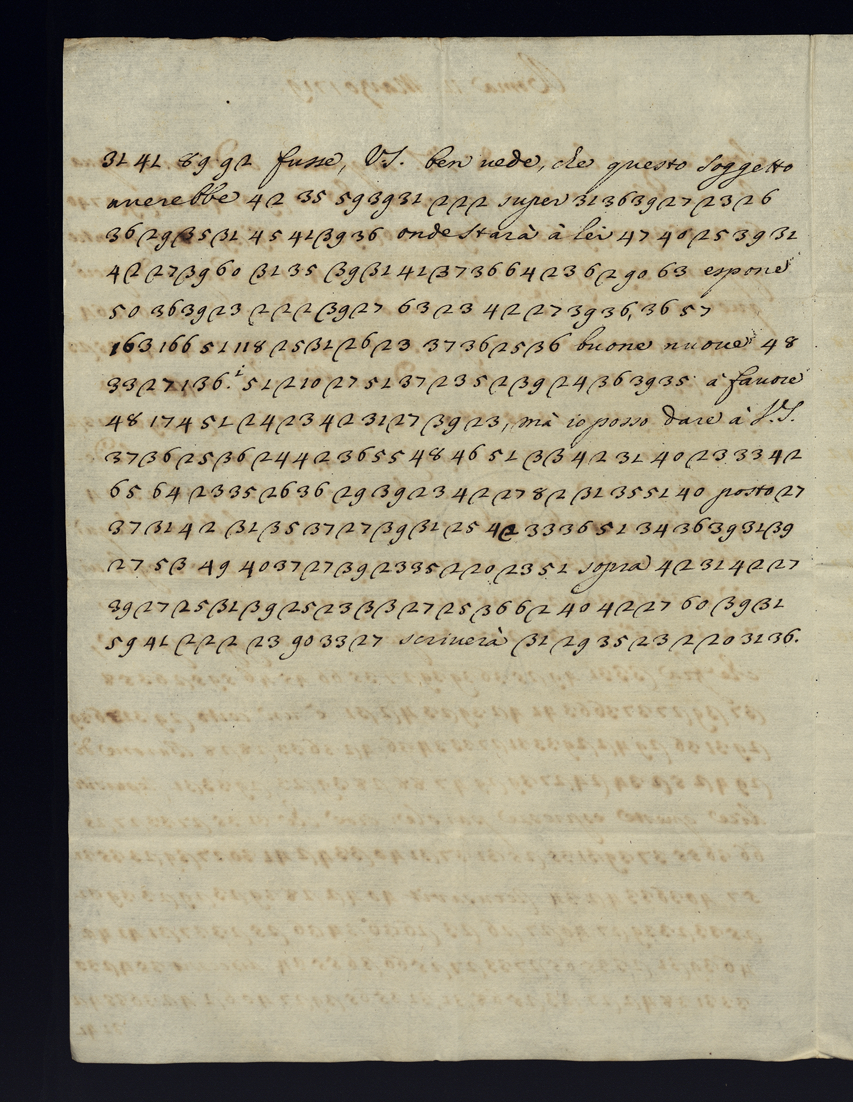 31 41 89 92 fusse, VS. ben uede, che questo soggetto
auerebbe 42 35 59 39 31 222 super 31 36 39 27 23 26
36 29 35 31 45 41 39 36 onde starà à lei 47 40 25 39 31
42 27 39 60 31 35 39 31 41 37 36 64 23 62 90 63 espone
50 36 39 23 222 39 27 63 23 42 27 39 36, 36 57
163 166 51 118 25 31 26 23 37 36 25 36 buone nuoue 48
33 27 136. 51 210 27 51 37 23 52 39 24 36 39 35 à fauore
48 174 51 24 23 42 31 27 39 23, mà io posso dare à S.S.
37 36 25 36 24 42 36 55 48 46 51 33 42 31 40 23 33 42
65 64 23 35 26 36 29 39 23 42 27 82 31 35 51 40 posto 27
37 31 42 31 35 37 27 39 31 25 42 33 36 51 34 36 39 31 39
27 53 49 40 37 27 39 23 35 220 23 51 sopra 42 31 42 27
39 27 25 31 39 25 23 33 27 25 36 62 40 42 27 60 39 31
59 41 222 23 90 33 27 scriuerà 31 29 35 23 220 31 36.